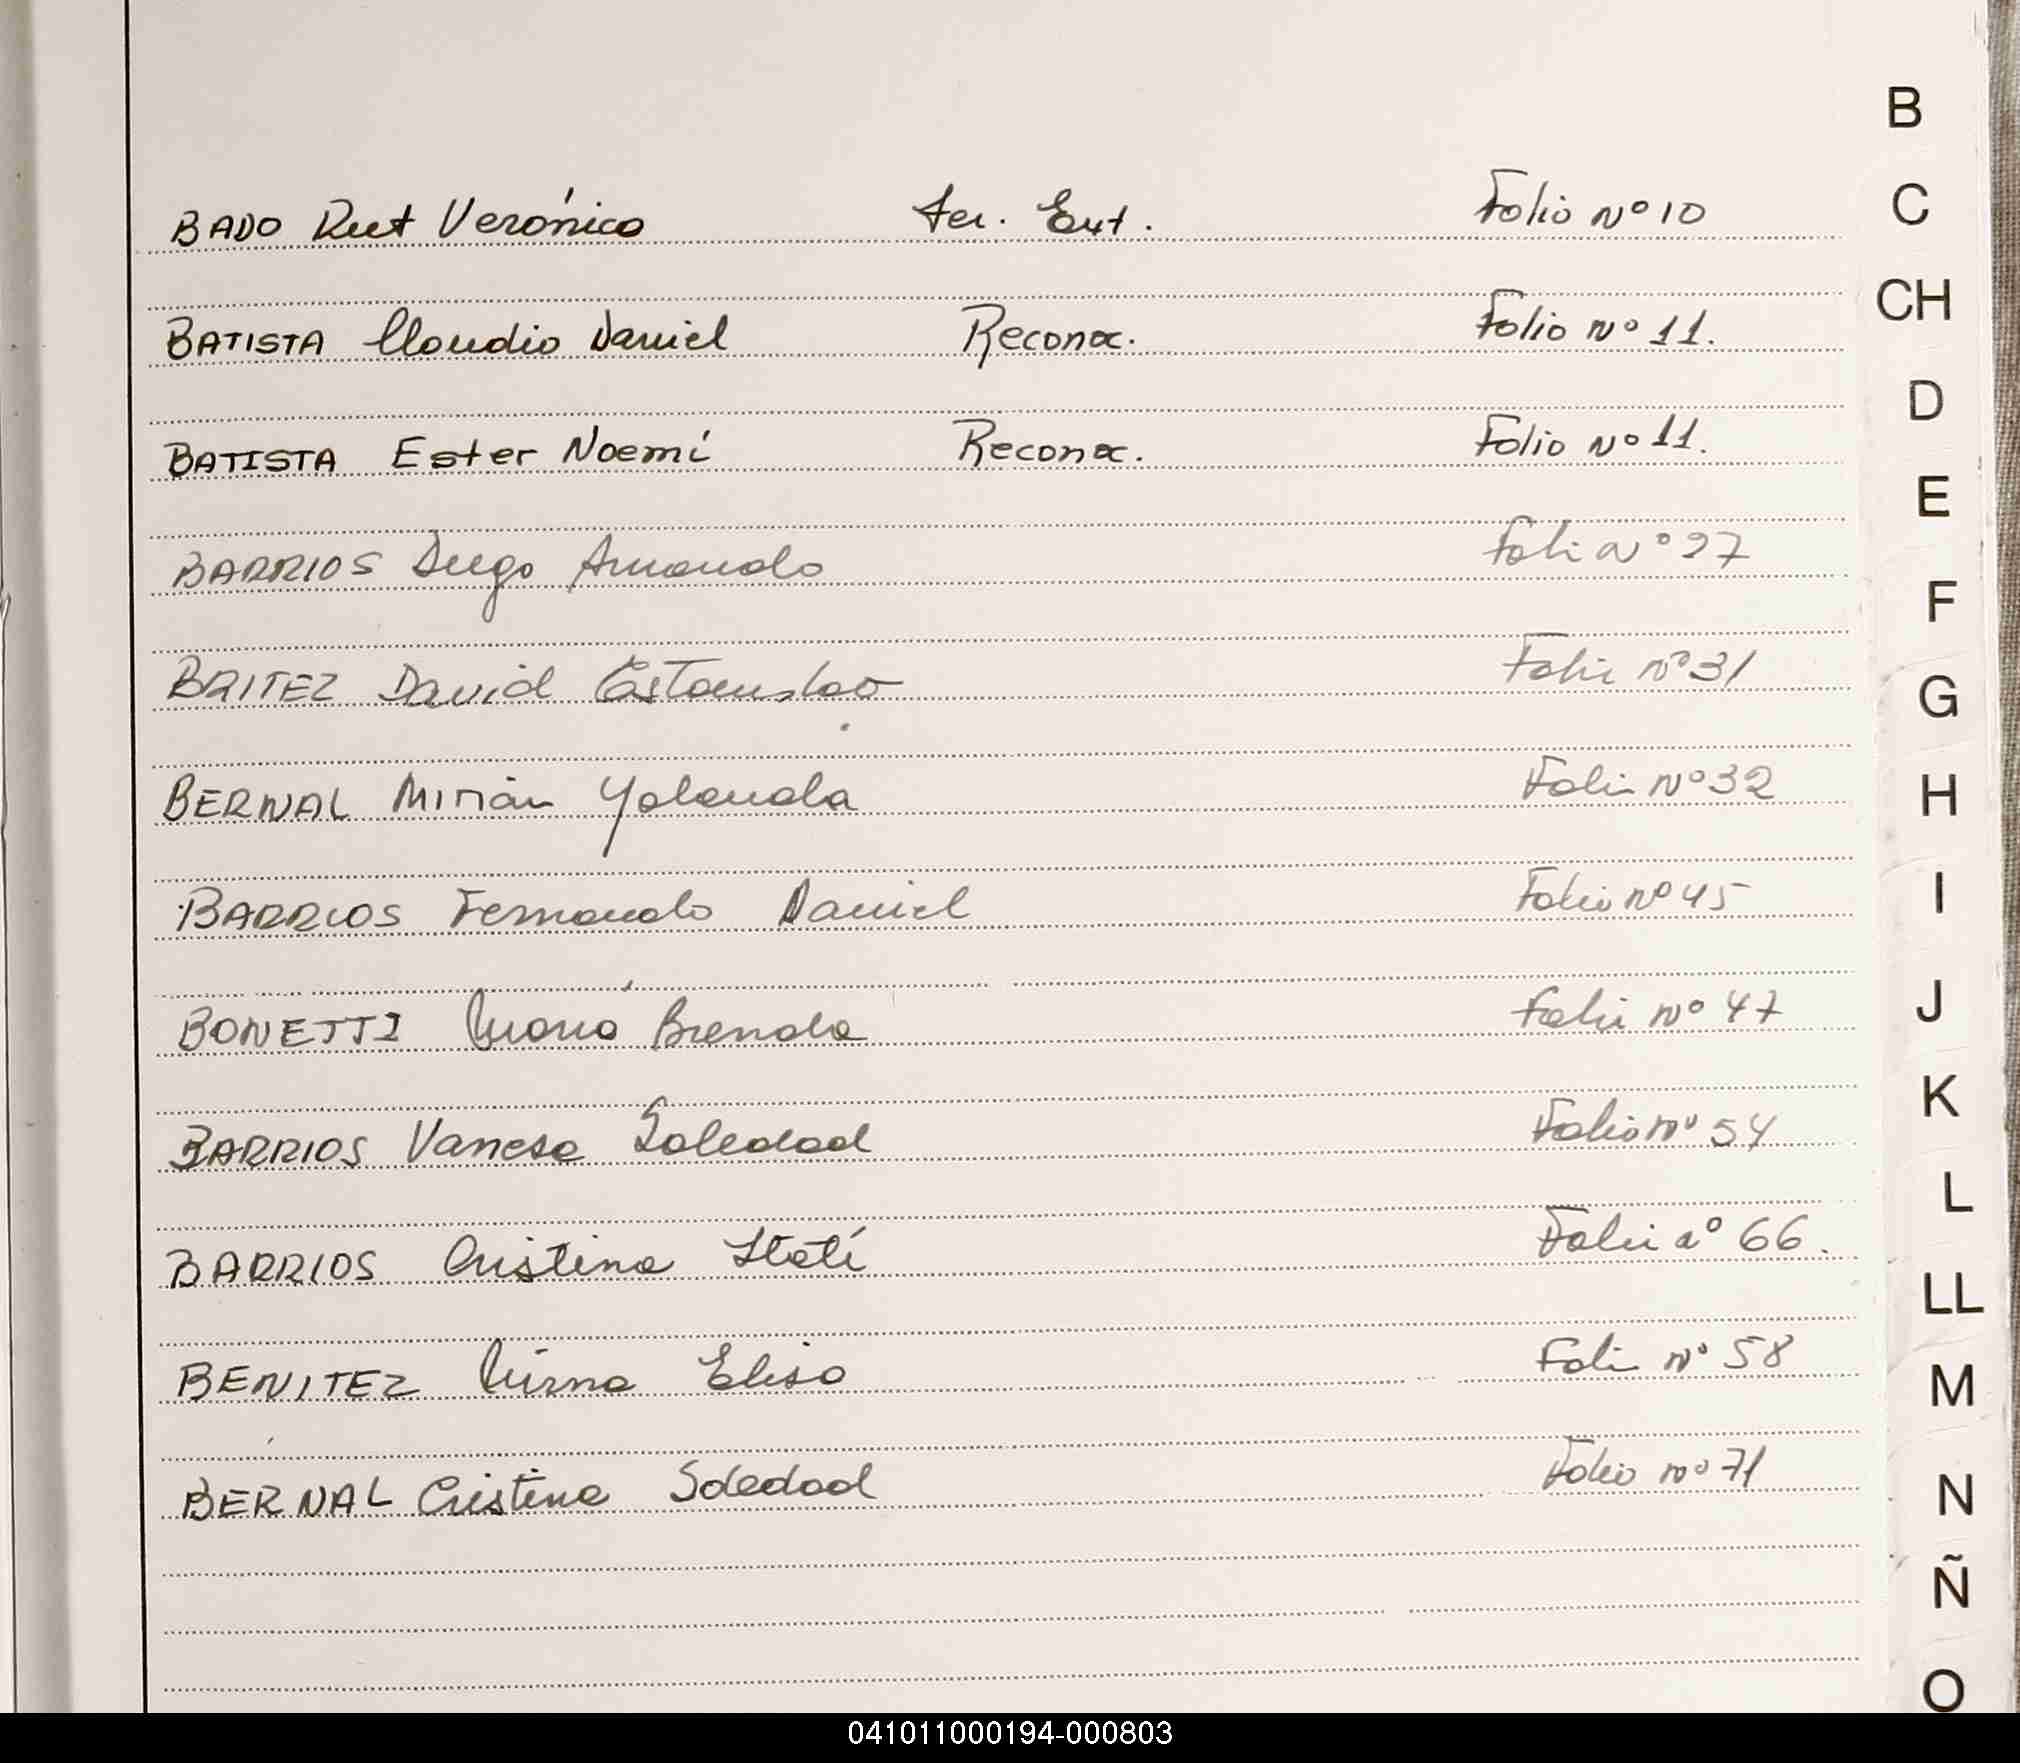 B
BADO Rut Verónica Ter. Ext. Folio Nº 10
C
CH
BATISTA Claudio Daniel Reconoc. Folio Nº 11.
D
BATISTA Ester Noemí Reconoc. Folio Nº 11.
E
BARRIOS Diego Armando Folio Nº 27
F
BRITEZ David Estanislao Folio Nº 31
G
BERNAL Mirian Yolanda Folio Nº 32
H
BARRIOS Fernando Daniel Folio nº 45
I
BONETTI María Brenda Folio nº 47
J
K
BARRIOS Vanesa Soledad Folio nº 54
L
BARRIOS Cristina Itatí Folio nº 66.
LL
BENITEZ Mirna Elisa Folio nº 58
M
BERNAL Cristina Soledad Folio nº 71
N
Ñ
O
041011000194-000803